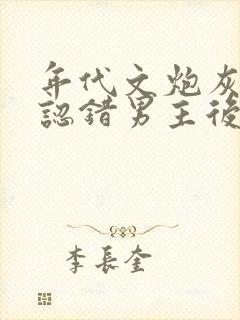 年代文炮灰
認錯男主後
李長奎